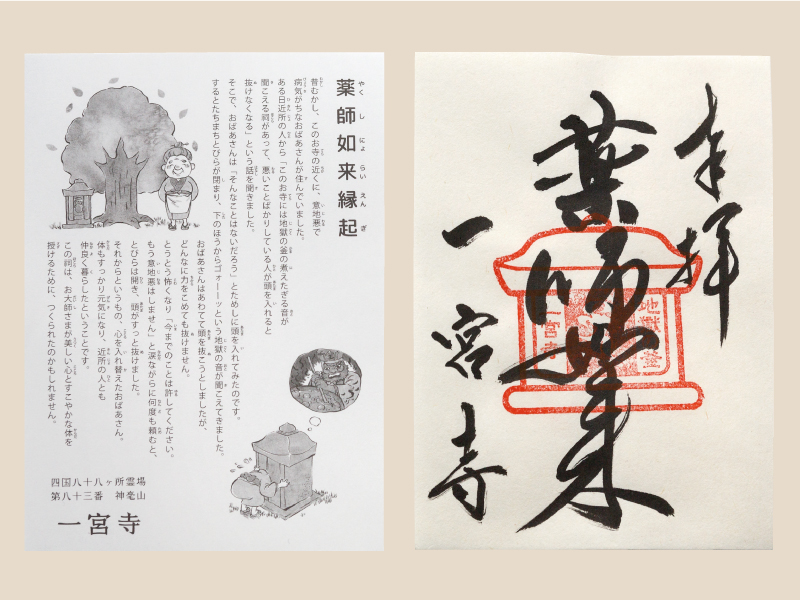 薬師如来縁起
昔むかし、このお寺の近くに、意地悪で
病気がちなおばあさんが住んでいました。
ある日近所の人から「このお寺には地獄の釜の煮えたぎる音が
聞こえる祠があって、悪いことばかりしている人が頭を入れると
抜けなくなる」という話を聞きました。
そこで、おばあさんは「そんなことはないだろう」とためしに頭を入れてみたのです。
するとたちまちとびらが閉まり、下のほうからゴォーーッという地獄の音が聞こえてきました。
おばあさんはあわてて頭を抜こうとしましたが、
どんなに力をこめても抜けません。
とうとう怖くなり「今までのことは許してください。
もう意地悪はしません」と涙ながらに何度も頼むと、
とびらは開き、頭がすっと抜けました。
それからというもの、心を入れ替えたおばあさん。
体もすっかり元気になり、近所の人とも
仲良く暮らしたということです。
この祠は、お大師さまが美しい心とすこやかな体を
授けるために、つくられたのかもしれません。
四国八十八ヶ所霊場
第八十三番 神毫山
一宮寺
奉拝
薬師如来
一宮寺